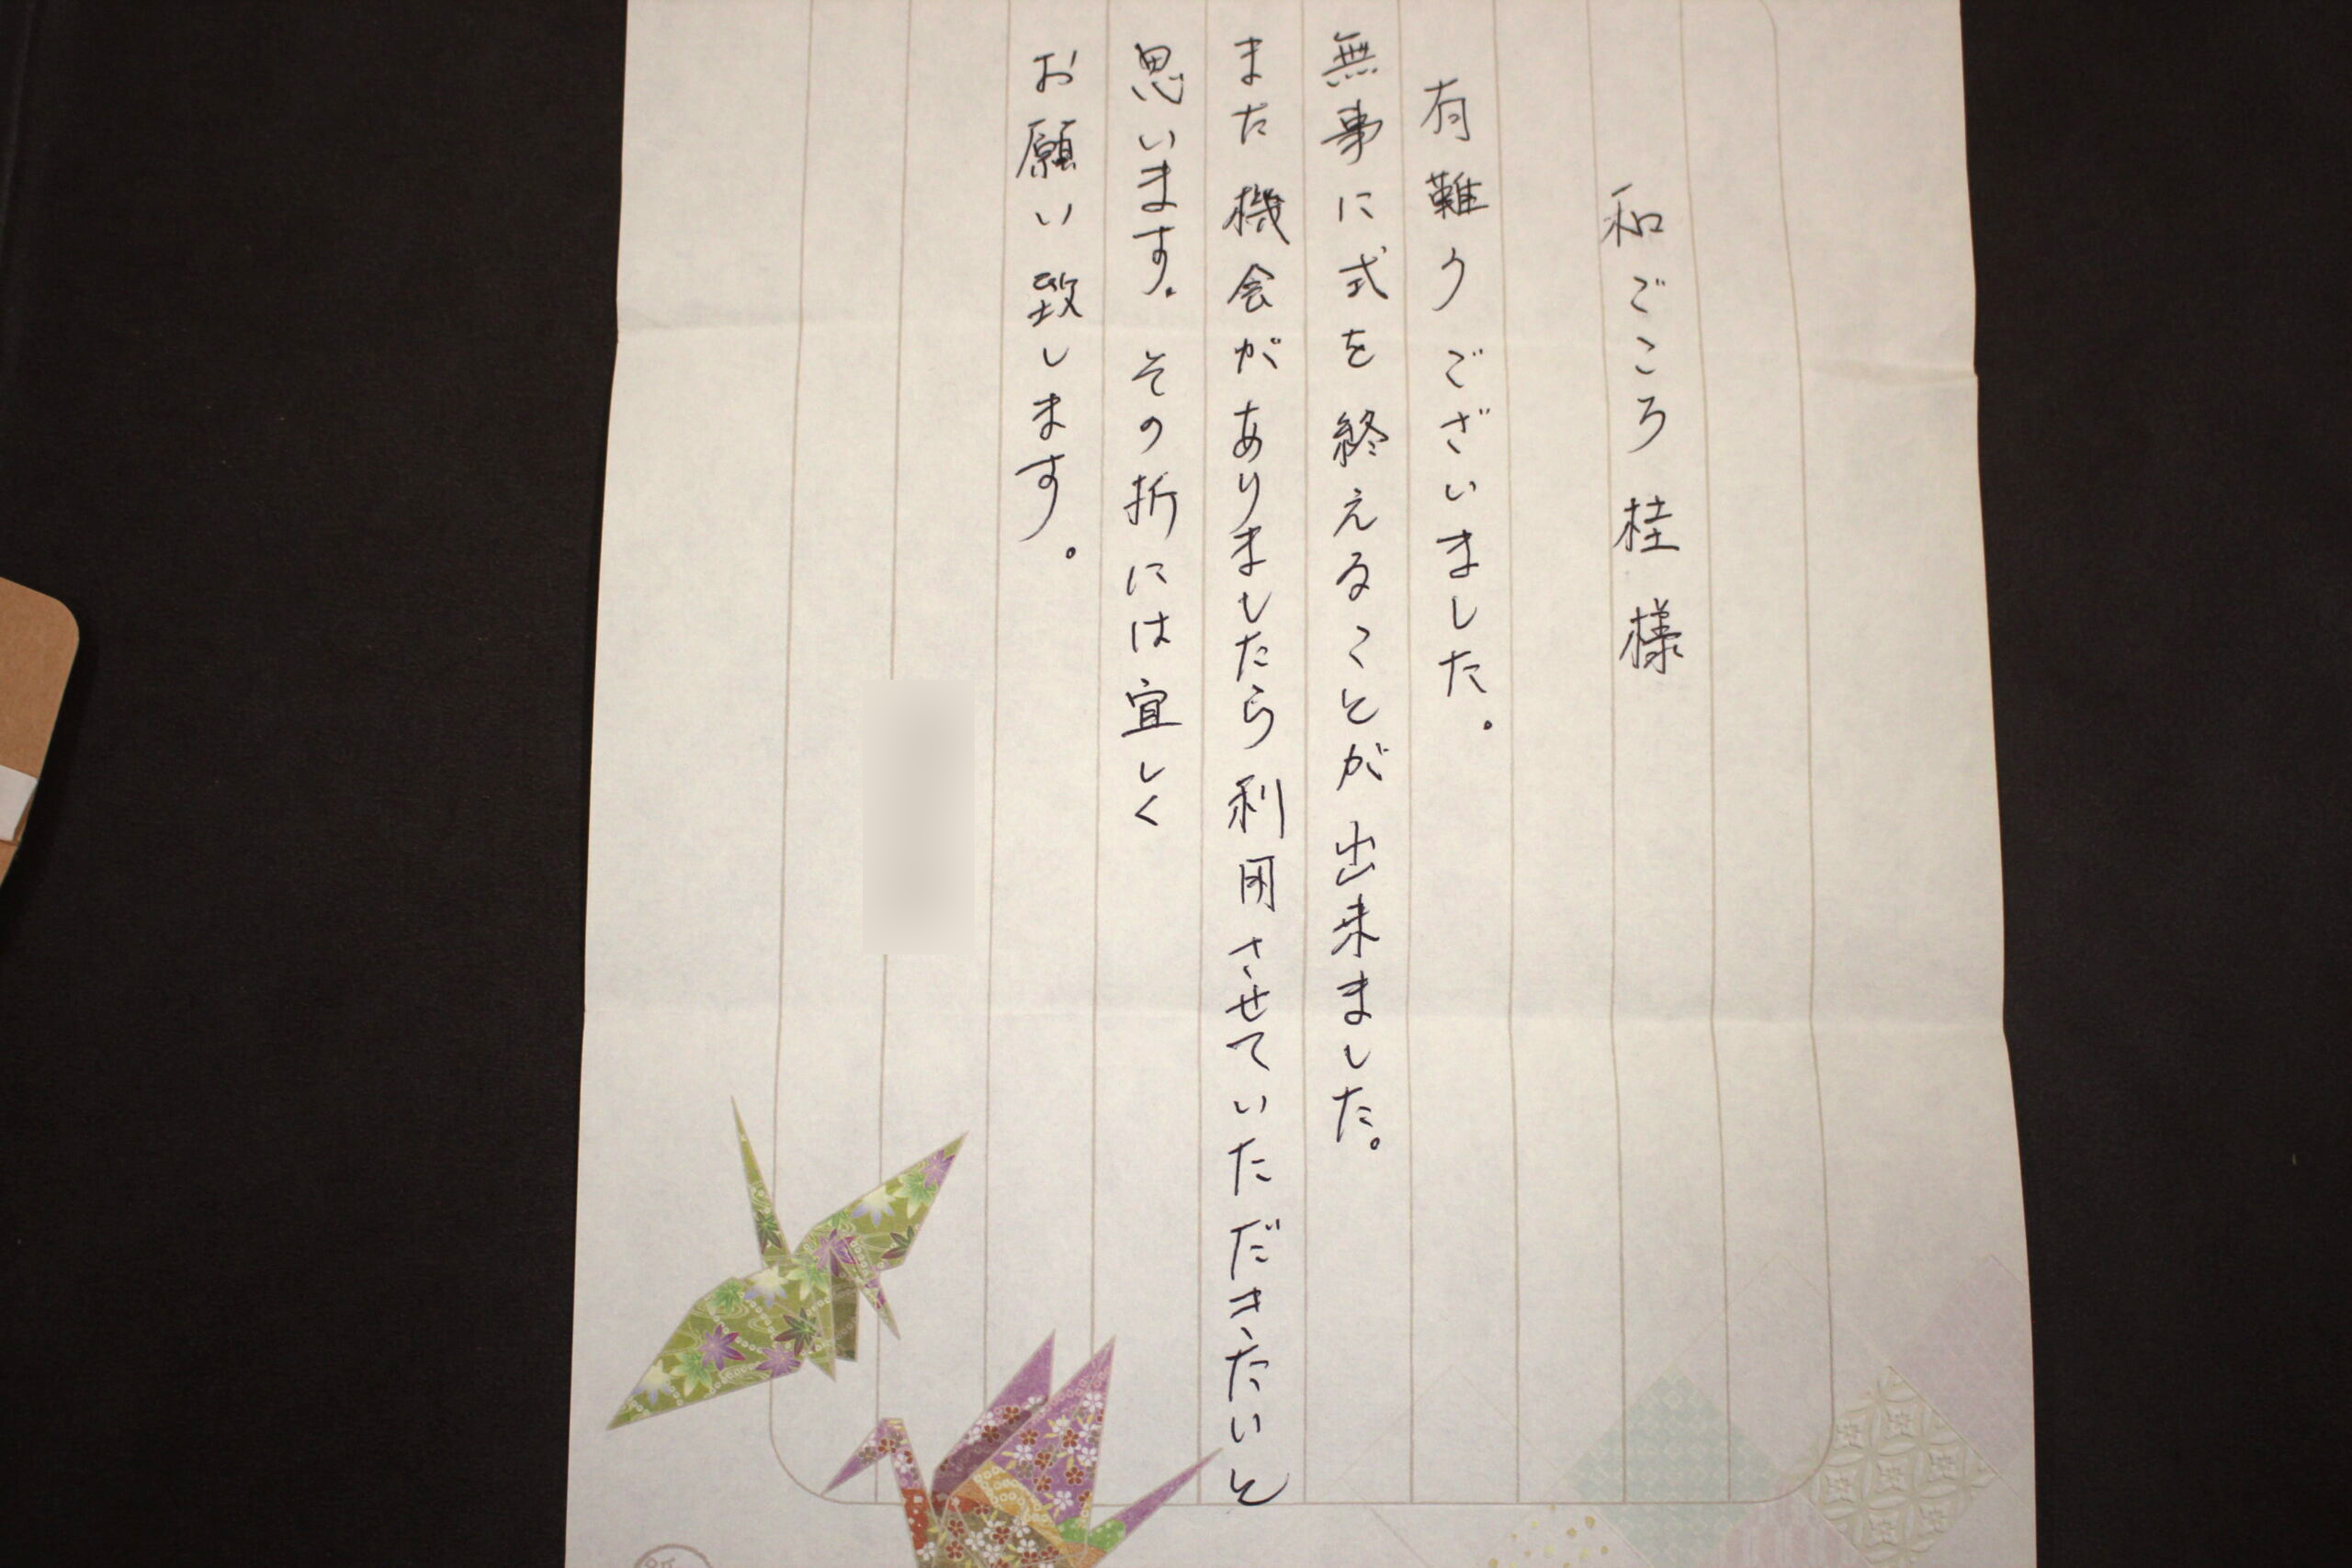 和ごころ 桂 様
有難うございました。
無事に式を終えることが出来ました。
また機会がありましたら利用させていただきたいと
思います。その折には宜しく
お願い致します。